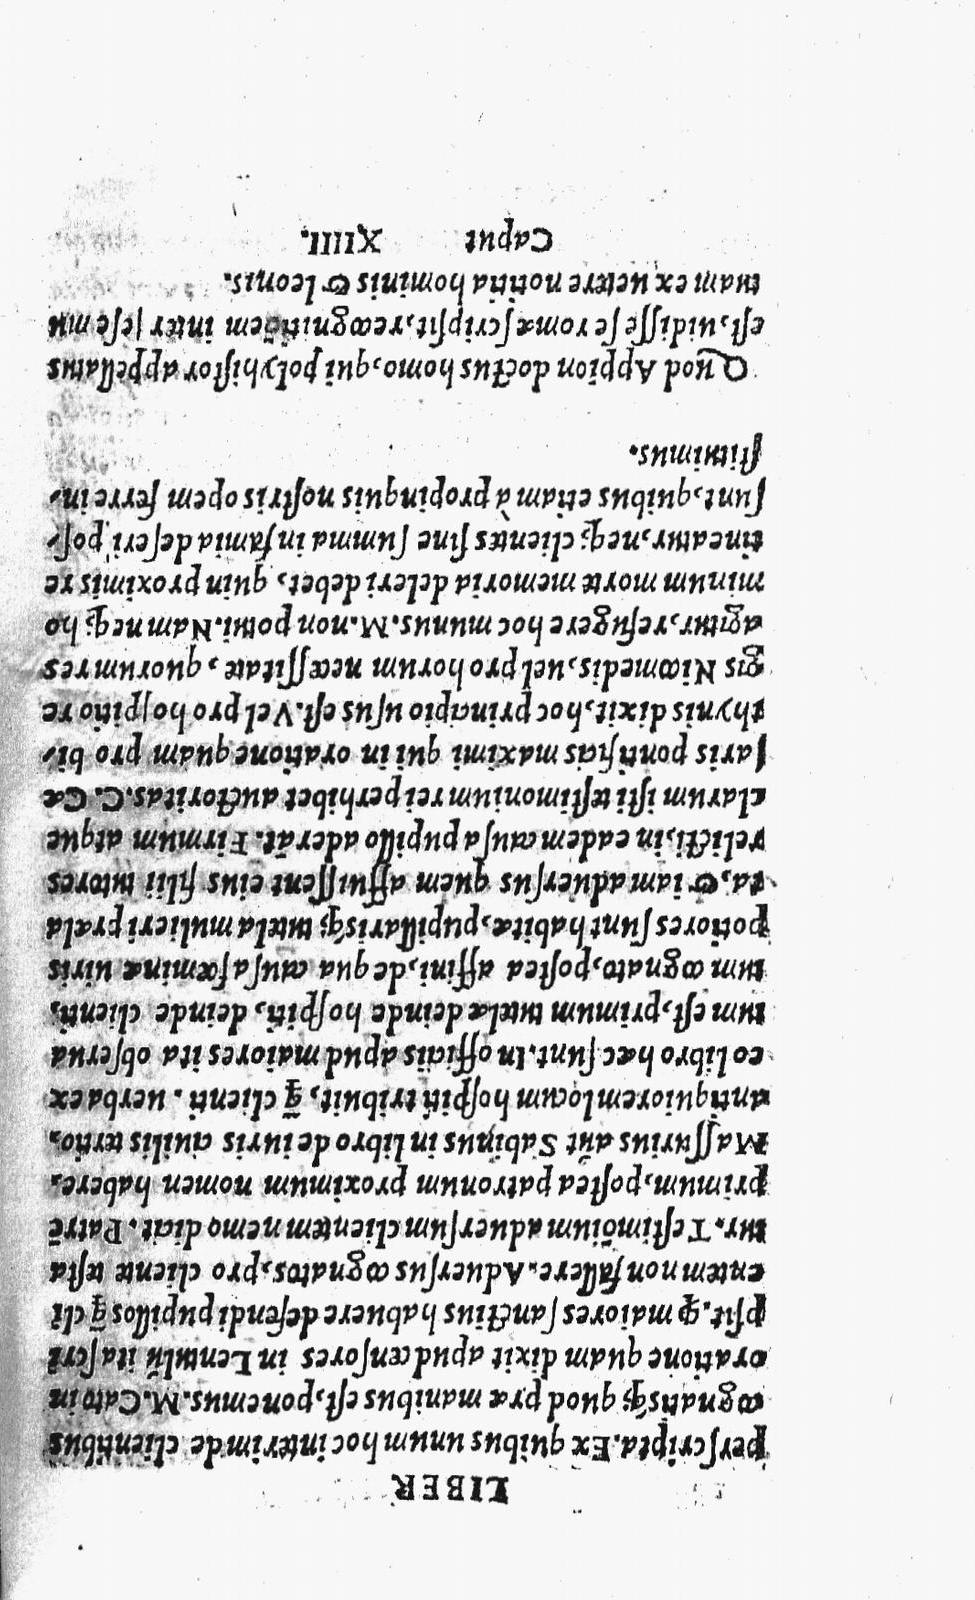 LIBER
perscripta. Ex quibus unum hoc interim de clientibus
cognatisq; quod præ manibus est, ponemus. M. Cato in
oratione quam dixit apud cẽsores in Lentulũ ita scri
psit. ꝙ maiores sanctius habuere defendi pupillos q̃ cli
entem non fallere. Aduersus cognatos, pro cliente testa
tur. Testimõium aduersum clientem nemo dicit. Patrẽ
primum, postea patronum proximum nomen habere.
Massurius aũt Sabinus in libro de iuris ciuilis tertio,
antiquiorem locum hospiti tribuit, q̃ clienti. uerba ex
eo libro hæc sunt. In officiis apud maiores ita obserua
tum est, primum tutelæ deinde hospiti, deinde clienti,
tum cognato, postea affini, de qua causa fœminæ uiris
potiores sunt habitæ, pupillarisq; tutela mulieri præla
ta, & iam aduersus quem affuissent eius filii tutores
relicti, in eadem causa pupillo aderãt. Firmum atque
clarum isti testimonium rei perhibet auctoritas. C. Cæ
saris pontificis maximi qui in oratione quam pro bi-
thynis dixit, hoc principio usus est. Vel pro hospitio re
gis Nicomedis, uel pro horum necessitate, quorum res
agitur, refugere hoc munus. M. non potui. Nam neq; ho
minum morte memoria deleri debet, quin proximis re
tineatur, neq; clientes sine summa infamia deseri pos-
sunt, quibus etiam à propinquis nostris opem ferre in-
stituimus.
Quod Appion doctus homo, qui polyhistor appellatus
est, uidisse se romæ scripsit, recognitiõem inter sese mu
tuam ex uetere notitia hominis & leonis.
Caput XIIII.